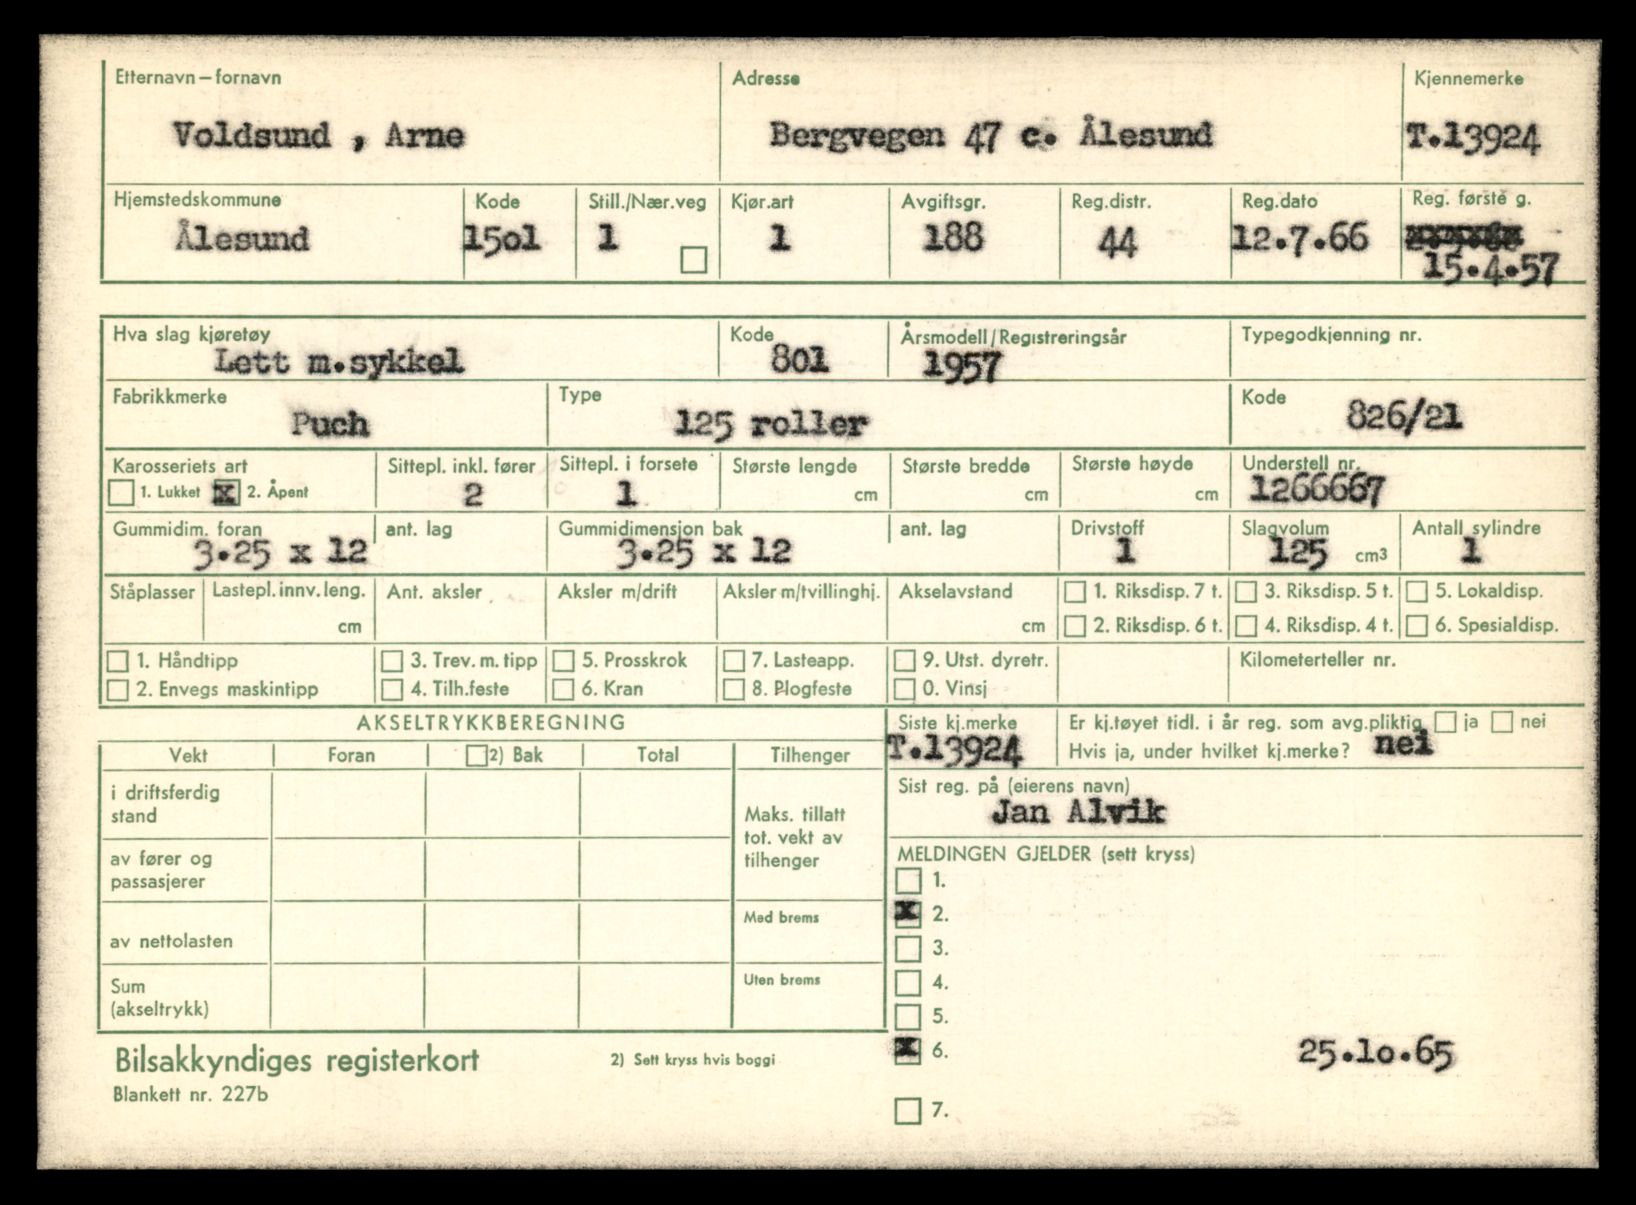 Etternavn – fornavn Adresse Kjennemerke
Voldsund , Arne Bergvegen 47 c. Ålesund T.13924
Hjemstedskommune Kode Still./Nær.veg Kjør.art Avgiftsgr. Reg.distr. Reg.dato Reg. første g.
Ålesund 15o1 1 1 188 44 12.7.66
15.4.57
Hva slag kjøretøy Kode Årsmodell/Registreringsår Typegodkjenning nr.
Lett m.sykkel 801 1957
Fabrikkmerke Type Kode
Puch 125 roller 826/21
Karosseriets art Sittepl. inkl. fører Sittepl. i forsete Største lengde Største bredde Største høyde Understell nr.
1. Lukket x 2. Åpent 2 1 cm cm cm 1266667
Gummidim. foran ant. lag Gummidimensjon bak ant. lag Drivstoff Slagvolum Antall sylindre
3.25 x 12 3.25 x 12 1 125 cm3 1
Ståplasser Lastepl. innv. leng. Ant. aksler Aksler m/drift Aksler m/tvillinghj. Akselavstand 1. Riksdisp. 7 t. 3. Riksdisp. 5 t. 5. Lokaldisp.
cm cm 2. Riksdisp. 6 t. 4. Riksdisp. 4 t. 6. Spesialdisp.
1. Håndtipp 3. Trev. m. tipp 5. Prosskrok 7. Lasteapp. 9. Utst. dyretr. Kilometerteller nr.
2. Envegs maskintipp 4. Tilh.feste 6. Kran 8. Plogfeste 0. Vinsj
AKSELTRYKKBEREGNING Siste kj.merke Er kj.tøyet tidl. i år reg. som avg.pliktig ja nei
T.13924 Hvis ja, under hvilket kj.merke? nei
Vekt Foran 2) Bak Total Tilhenger
Sist reg. på (eierens navn)
Jan Alvik
i driftsferdig
stand
Maks. tillatt
tot. vekt av
tilhenger
av fører og
passasjerer
MELDINGEN GJELDER (sett kryss)
1.
x 2.
Med brems
av nettolasten
3.
Uten brems
4.
Sum
(akseltrykk)
5.
x 6. 25.1o.65
Bilsakkyndiges registerkort 2) Sett kryss hvis boggi
Blankett nr. 227b
7.